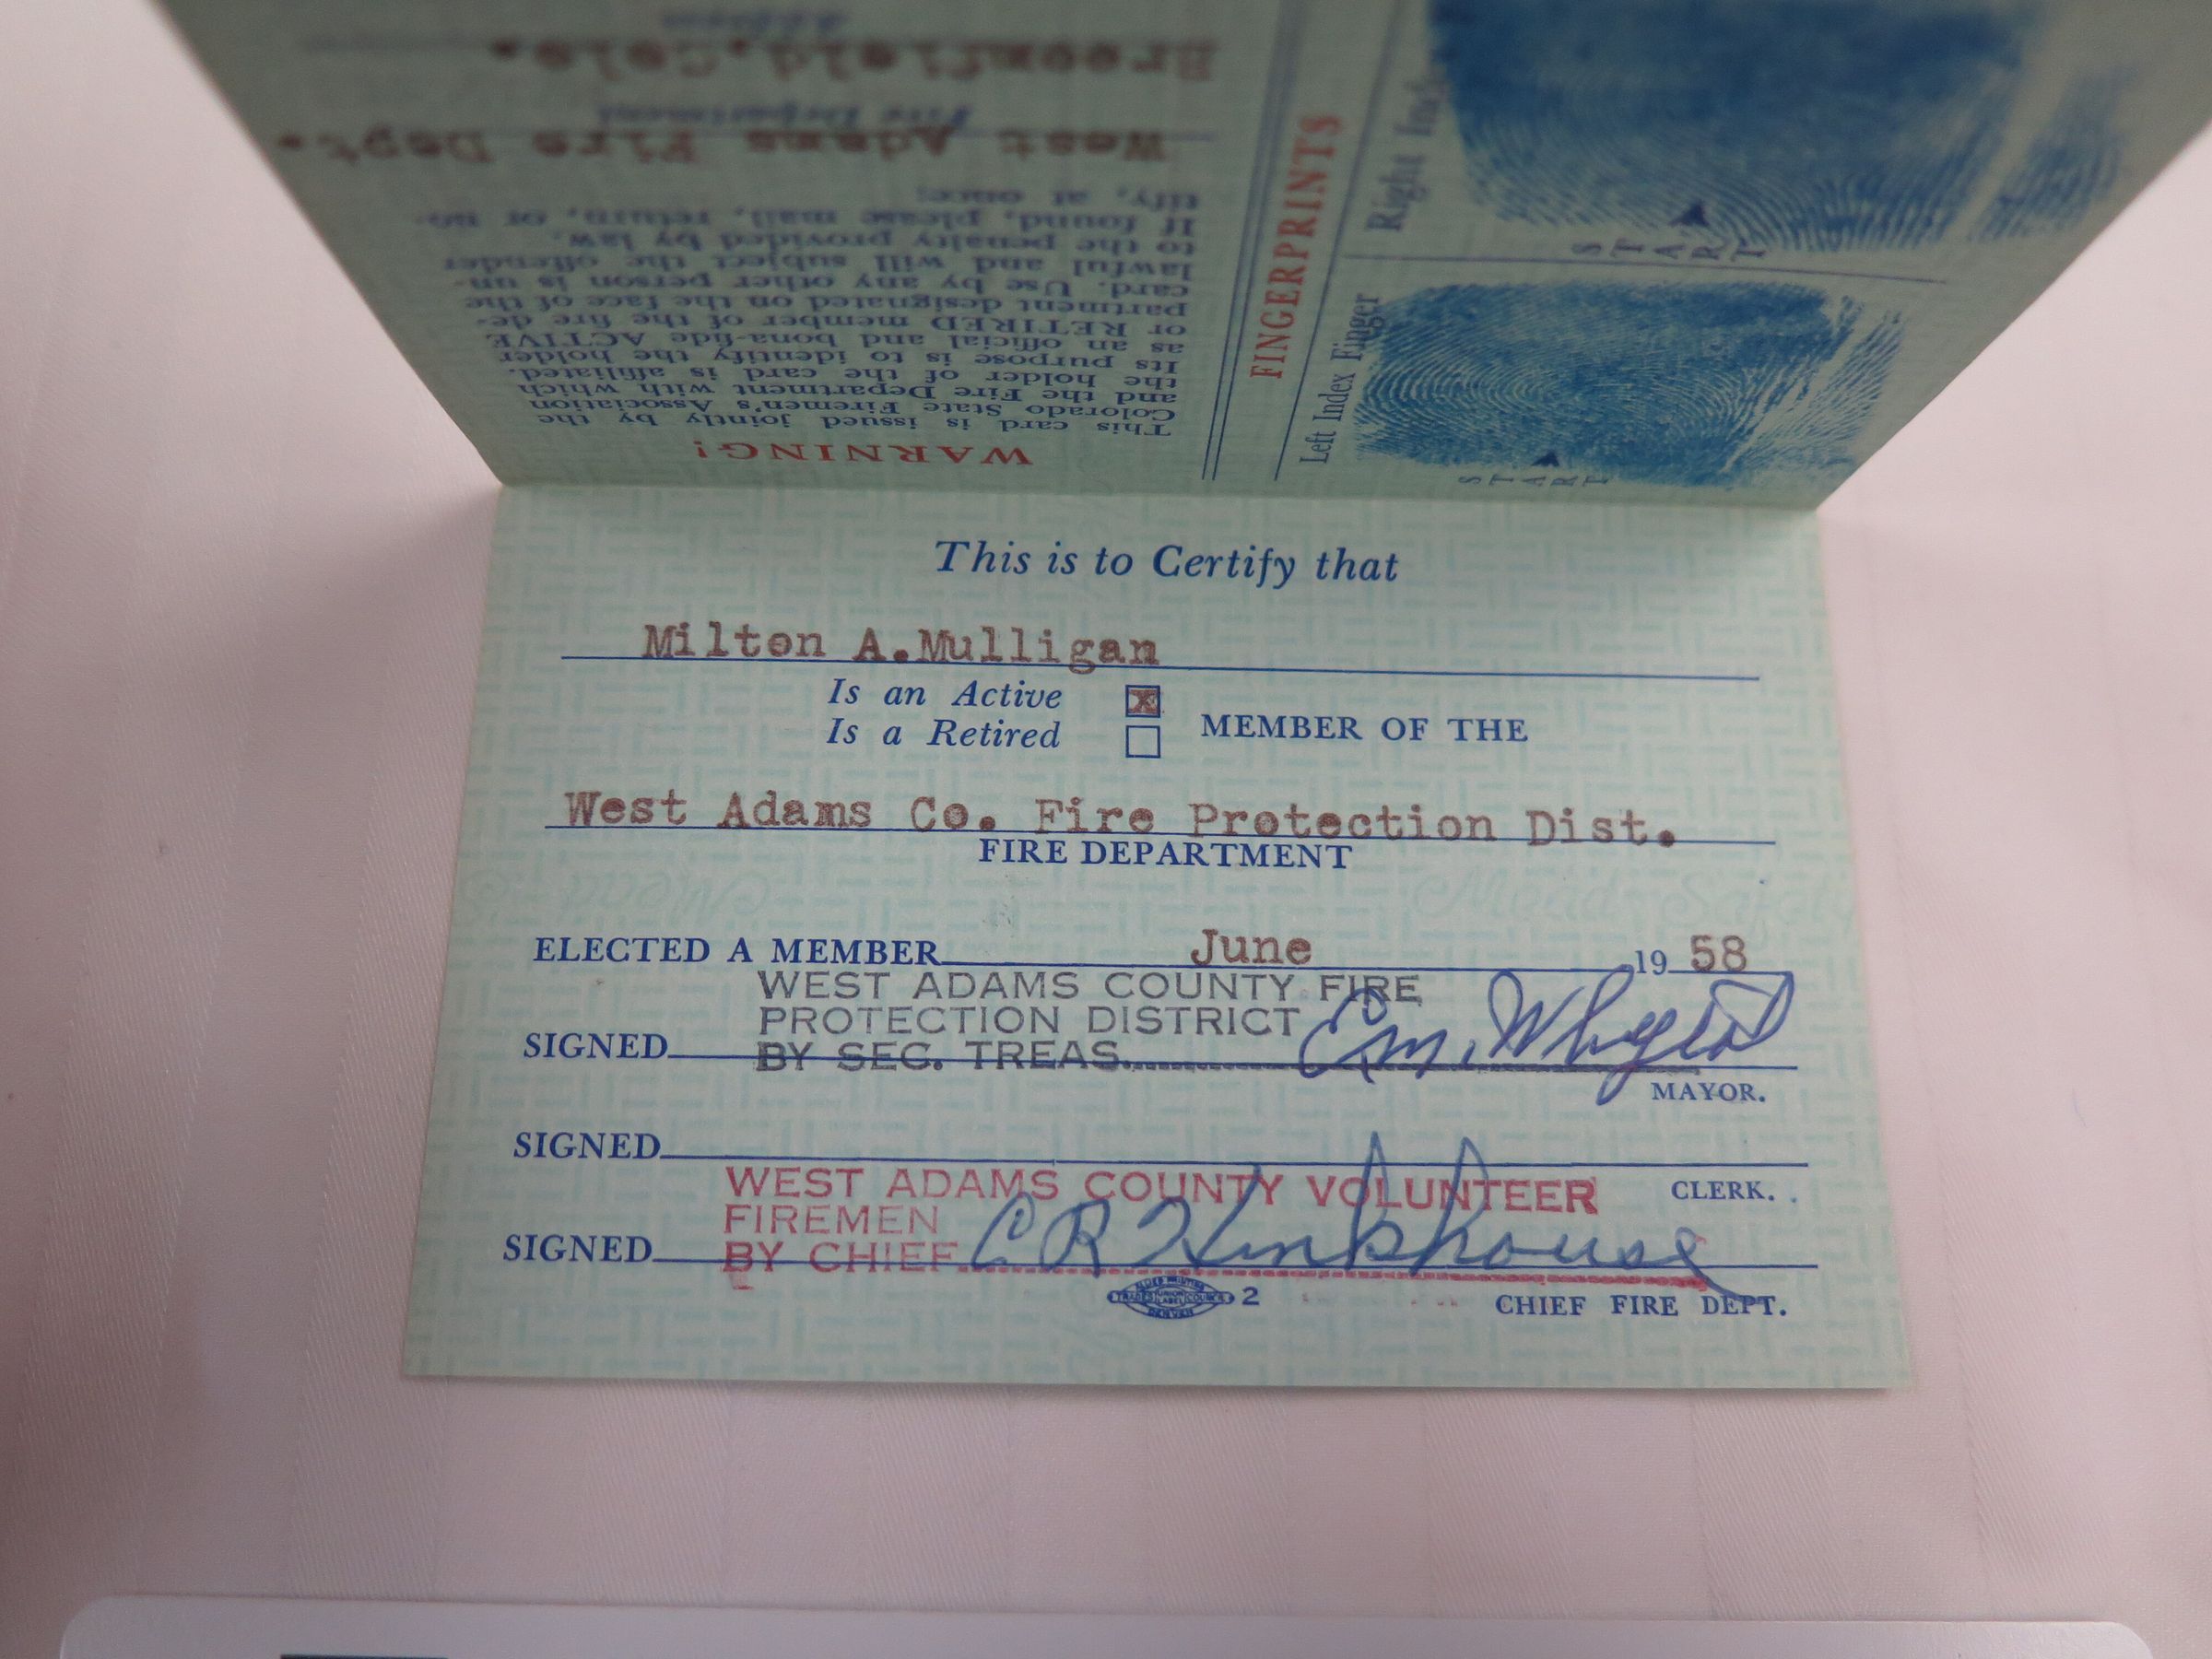 WARNING!
This card is issued jointly by the
Colorado State Firemen's Association
and the Fire Department with which
the holder of the card is affiliated.
Its purpose is to identify the holder
as an official and bona-fide ACTIVE
or RETIRED member of the fire de-
partment designated on the face of the
card. Use by any other person is un-
lawful and will subject the offender
to the penalty provided by law.
If found, please mail, return, or no-
tify, at once:
West Adams Fire Dept.
Fire Department
Broomfield,Colo.
Address
FINGERPRINTS
Right Ind
START
Left Index Finger
START
This is to Certify that
Milton A.Mulligan
Is an Active x
Is a Retired
MEMBER OF THE
West Adams Co. Fire Protection Dist.
FIRE DEPARTMENT
Mead Safety
ELECTED A MEMBER June 19 58
WEST ADAMS COUNTY FIRE
PROTECTION DISTRICT
SIGNED BY SEC. TREAS. E.M.
MAYOR.
SIGNED
CLERK.
WEST ADAMS COUNTY VOLUNTEER
FIREMEN
SIGNED BY CHIEF C R Hinkhouse
ALLIED PRINTING
TRADES UNION LABEL COUNCIL
DENVER
2
CHIEF FIRE DEPT.